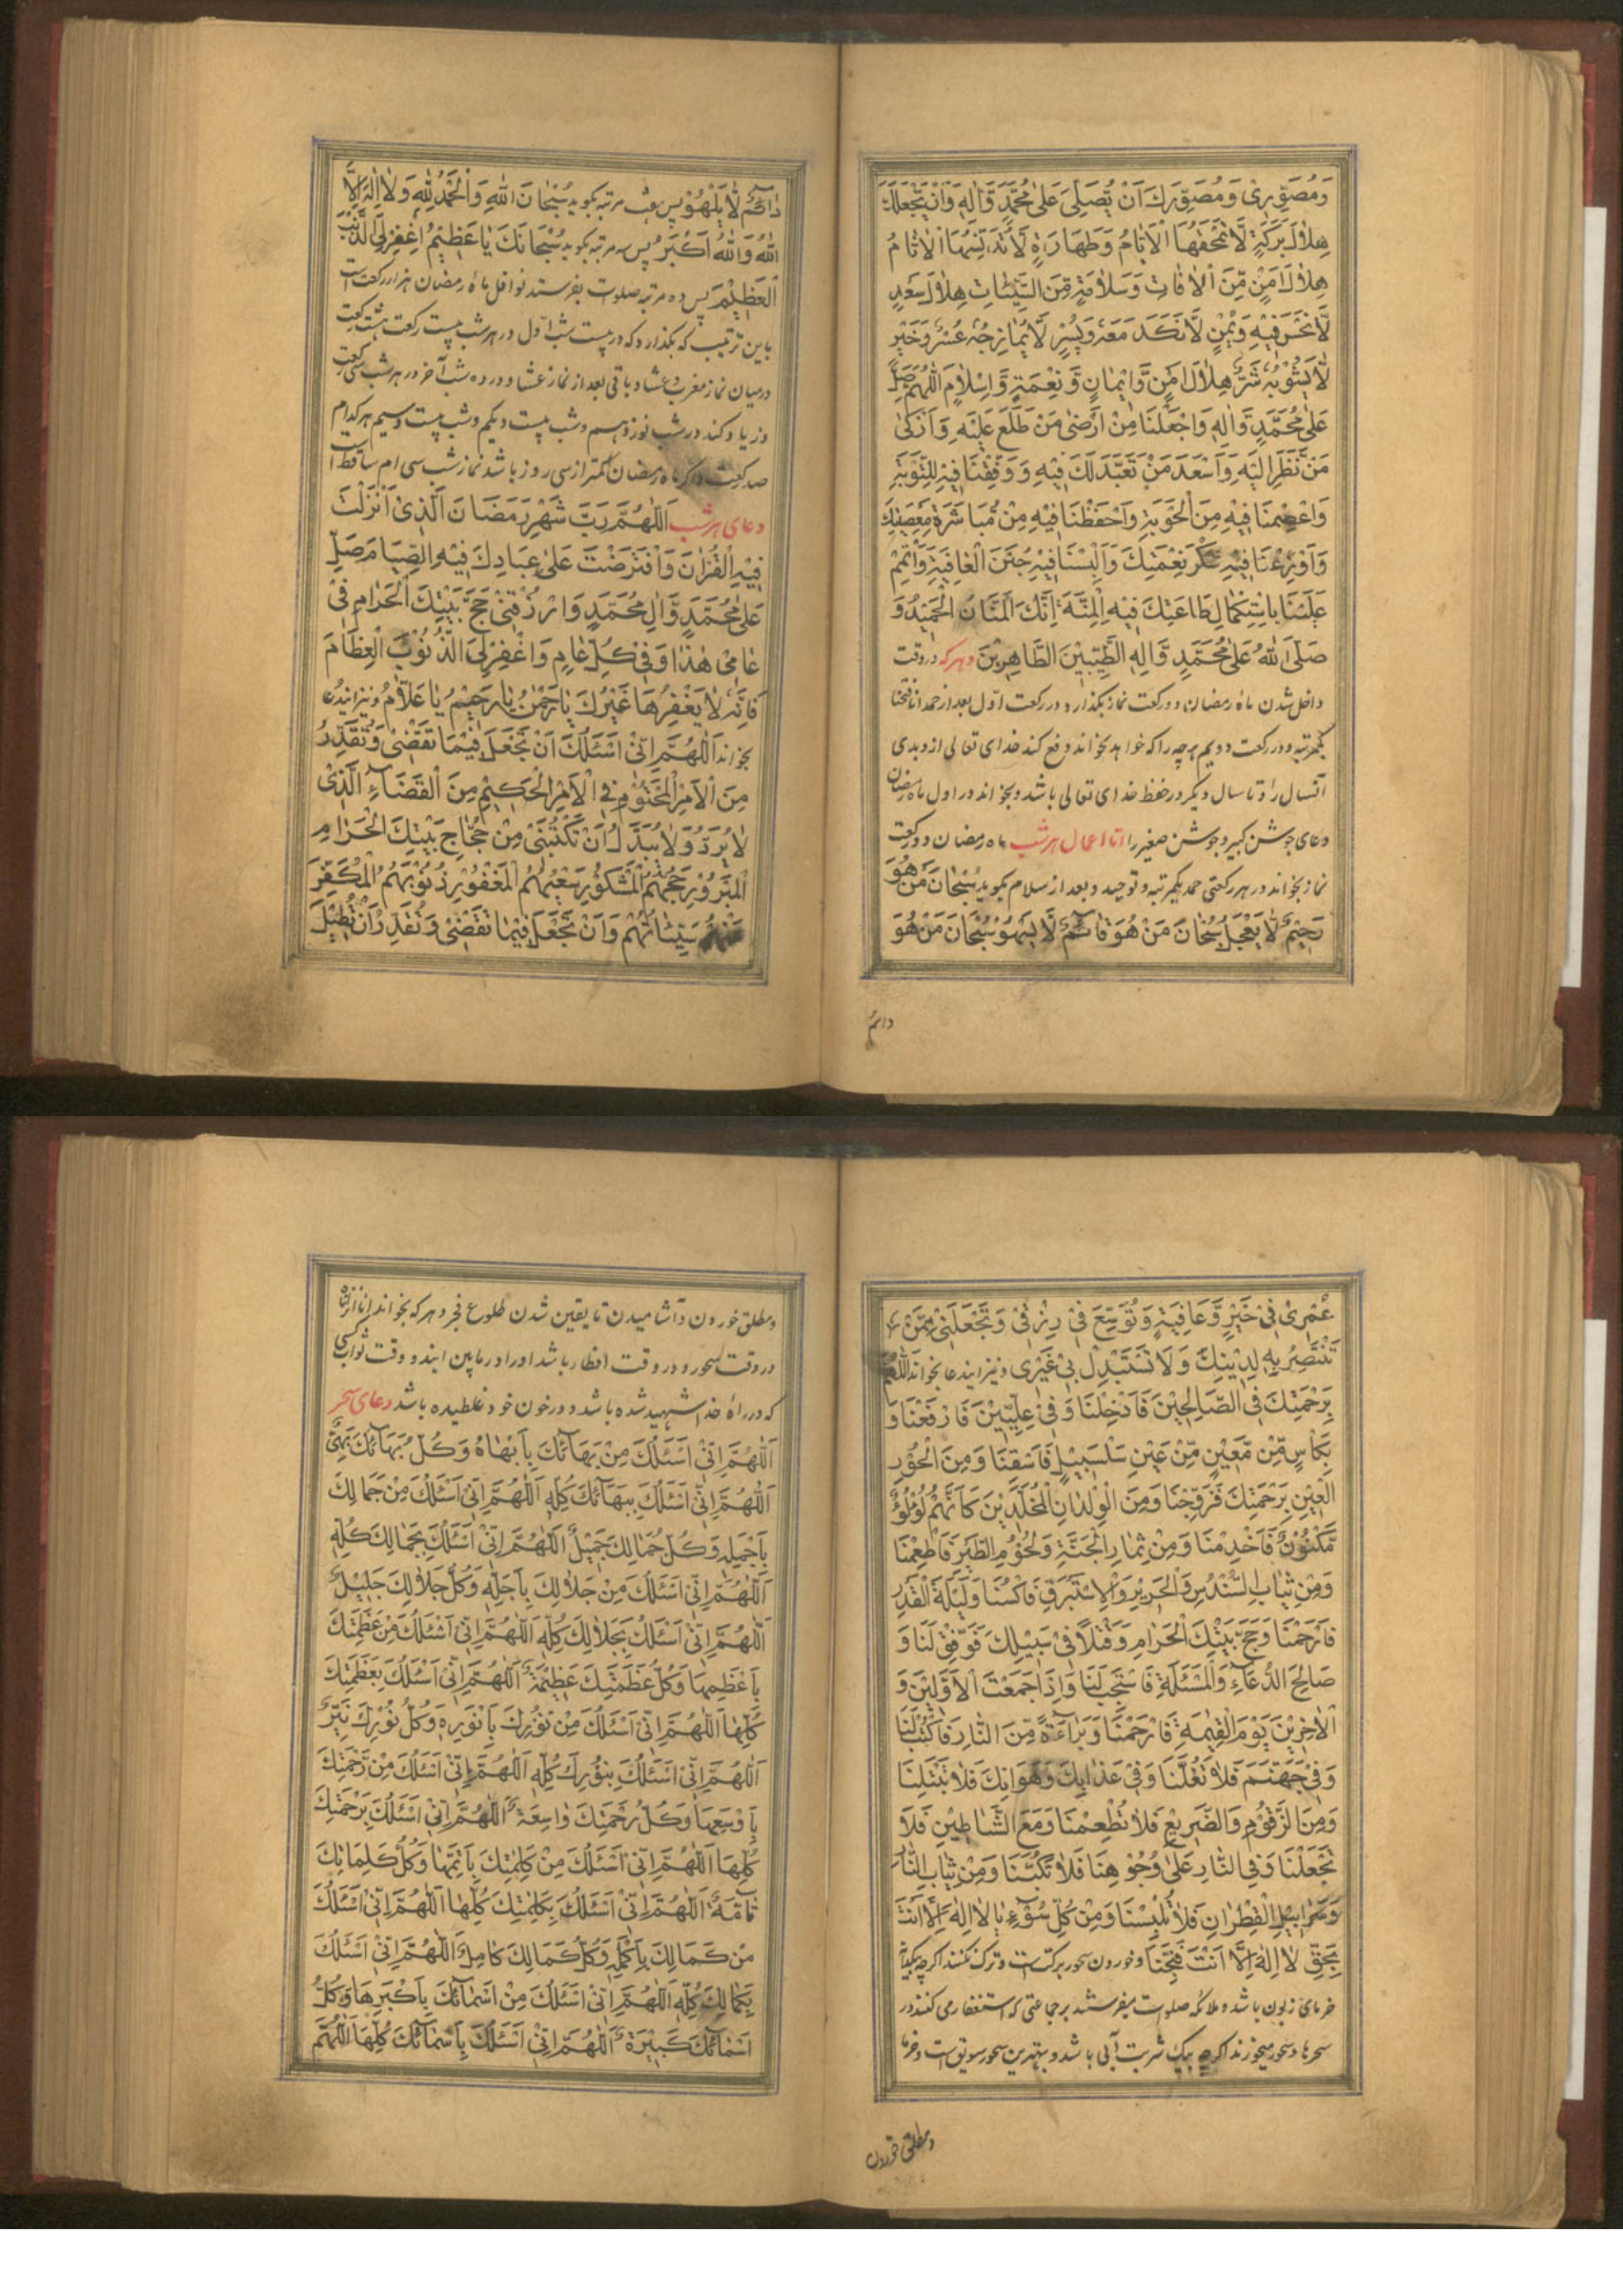 وَمُصَوِّرِی وَمُصَوِّرَكَ اَنْ تُصَلِّیَ عَلیٰ مُحَمَّدٍ وَّاٰلِهٖ وَاَنْ یَّجْعَلَكَ
هِلالَ بَرَكَةٍ لَّا تَمْحَقُهَا الْاَیَّامُ وَطَهَارَةٍ لَّا تُدَنِّسُهَا الْاٰثَامُ
هِلٰالَ اَمْنٍ مِّنَ الْاٰفَاتِ وَسَلَامَةٍ مِّنَ السَّیِّئٰاتِ هِلٰالَ سَعْدٍ
لَّا نَحْسَ فِیْهِ وَیُمْنٍ لَّا نَكَدَ مَعَهُ وَیُسْرٍ لَّا یُمَازِجُهٗ عُسْرٌ وَخَیْرٍ
لَّا یَشُوْبُهٗ شَرٌّ هِلَالَ اَمْنٍ وَّاِیْمَانٍ وَّنِعْمَةٍ وَّاِسْلَامٍ اَللّٰهُمَّ صَلِّ
عَلیٰ مُحَمَّدٍ وَّاٰلِهٖ وَاجْعَلْنَا مِنْ اَرْضیٰ مَنْ طَلَعَ عَلَیْهِ وَاَزْكیٰ
مَنْ نَّظَرَ اِلَیْهِ وَاَسْعَدَ مَنْ تَعَبَّدَ لَكَ فِیْهِ وَوَفِّقْنَا فِیْهِ لِلتَّوْبَةِ
وَاعْصِمْنَا فِیْهِ مِنَ الْحَوْبَةِ وَاحْفَظْنَا فِیْهِ مِنْ مُّبَاشَرَةِ مَعْصِیَتِكَ
وَاَوْزِعْنَا فِیْهِ شُكْرَ نِعْمَتِكَ وَاَلْبِسْنَا فِیْهِ جُنَنَ الْعَافِیَةِ وَاَتْمِمْ
عَلَیْنَا بِاسْتِكْمَالِ طَاعَتِكَ فِیْهِ الْمِنَّةَ اِنَّكَ الْمَنَّانُ الْحَمِیْدُ وَ
صَلَّی اللّٰهُ عَلیٰ مُحَمَّدٍ وَّاٰلِهِ الطَّیِّبِیْنَ الطَّاهِرِیْنَ وهركه در وقت
داخل شدن ماه رمضان دو ركعت نماز بگذارد در ركعت اول بعد از حمد انا فتحنا
یكمرتبه و در ركعت دویم هرچه را كه خواهد بخواند دفع كند خدای تعالی از و بدی
آنسال را و تا سال دیگر در حفظ خدای تعالی باشد و بخواند در اول ماه رمضان
دعای جوشن كبیر و جوشن صغیر را اما اعمال هر شب ماه رمضان دو ركعت
نماز بخواند در هر ركعتی حمد یكمرتبه و توحید و بعد از سلام بگوید سُبْحَانَ مَنْ هُوَ
رَحِیْمٌ لَّا یَعْجَلُ سُبْحَانَ مَنْ هُوَ قَائِمٌ لَّا یَسْهُوْ سُبْحَانَ مَنْ هُوَ
دائم
دَائِمٌ لَّا یَلْهُوْ پس مرتبه بگوید سُبْحَانَ اللّٰهِ وَالْحَمْدُ لِلّٰهِ وَلَا اِلٰهَ اِلَّا
اللّٰهُ وَاللّٰهُ اَكْبَرُ پس سه مرتبه بگوید سُبْحَانَكَ یَا عَظِیْمُ اغْفِرْ لِیَ الذَّنْبَ
الْعَظِیْمَ پس ده مرتبه صلوات بفرستد نوافل ماه رمضان هزار ركعت است
باین ترتیب كه بگذارد كه در بیست شب اول در هر شب بیست ركعت هشت ركعت
در میان نماز مغرب و عشا و باقی بعد از نماز عشا و در ده شب آخر در هر شب سی ركعت
و زیاد كند در شب نوزدهم و شب بیست و یكم و شب بیست و سیم هر كدام
صد ركعت و اگر ماه رمضان كمتر از سی روز باشد نماز شب سی ام ساقط است
دعای هر شب اَللّٰهُمَّ رَبَّ شَهْرِ رَمَضَانَ الَّذِیْ اَنْزَلْتَ
فِیْهِ الْقُرْاٰنَ وَافْتَرَضْتَ عَلیٰ عِبَادِكَ فِیْهِ الصِّیَامَ صَلِّ
عَلیٰ مُحَمَّدٍ وَّاٰلِ مُحَمَّدٍ وَارْزُقْنِیْ حَجَّ بَیْتِكَ الْحَرَامِ فِیْ
عَامِیْ هٰذَا وَفِیْ كُلِّ عَامٍ وَاغْفِرْ لِیَ الذُّنُوْبَ الْعِظَامَ
فَاِنَّهٗ لَا یَغْفِرُهَا غَیْرُكَ یَا رَحْمٰنُ یَا رَحِیْمُ یَا عَلَّامُ و نیز ایندعا
بخواند اَللّٰهُمَّ اِنِّیْ اَسْئَلُكَ اَنْ تَجْعَلَ فِیْمَا تَقْضِیْ وَتُقَدِّرُ
مِنَ الْاَمْرِ الْمَحْتُوْمِ فِی الْاَمْرِ الْحَكِیْمِ مِنَ الْقَضَاءِ الَّذِیْ
لَا یُرَدُّ وَلَا یُبَدَّلُ اَنْ تَكْتُبَنِیْ مِنْ حُجَّاجِ بَیْتِكَ الْحَرَامِ
الْمَبْرُوْرِ حَجُّهُمُ الْمَشْكُوْرِ سَعْیُهُمُ الْمَغْفُوْرِ ذُنُوْبُهُمُ الْمُكَفَّرِ
عَنْهُمْ سَیِّئَاتُهُمْ وَاَنْ تَجْعَلَ فِیْمَا تَقْضِیْ وَتُقَدِّرُ اَنْ تُطِیْلَ
عُمْرِیْ فِیْ خَیْرٍ وَّعَافِیَةٍ وَتُوَسِّعَ فِیْ رِزْقِیْ وَتَجْعَلَنِیْ مِمَّنْ
تَنْتَصِرُ بِهٖ لِدِیْنِكَ وَلَا تَسْتَبْدِلْ بِیْ غَیْرِیْ و نیز ایندعا بخواند اَللّٰهُمَّ
بِرَحْمَتِكَ فِی الصَّالِحِیْنَ فَاَدْخِلْنَا وَفِیْ عِلِّیِّیْنَ فَارْفَعْنَا وَ
بِكَاْسٍ مِّنْ مَّعِیْنٍ مِّنْ عَیْنٍ سَلْسَبِیْلٍ فَاسْقِنَا وَمِنَ الْحُوْرِ
الْعِیْنِ بِرَحْمَتِكَ فَزَوِّجْنَا وَمِنَ الْوِلْدَانِ الْمُخَلَّدِیْنَ كَاَنَّهُمْ لُؤْلُؤٌ
مَّكْنُوْنٌ فَاَخْدِمْنَا وَمِنْ ثِمَارِ الْجَنَّةِ وَلُحُوْمِ الطَّیْرِ فَاَطْعِمْنَا
وَمِنْ ثِیَابِ السُّنْدُسِ وَالْحَرِیْرِ وَالْاِسْتَبْرَقِ فَاكْسُنَا وَلَیْلَةَ الْقَدْرِ
فَارْحَمْنَا وَحَجَّ بَیْتِكَ الْحَرَامِ وَقَتْلًا فِیْ سَبِیْلِكَ فَوَفِّقْ لَنَا وَ
صَالِحَ الدُّعَاءِ وَالْمَسْئَلَةِ فَاسْتَجِبْ لَنَا وَاِذَا جَمَعْتَ الْاَوَّلِیْنَ وَ
الْاٰخِرِیْنَ یَوْمَ الْقِیٰمَةِ فَارْحَمْنَا وَبَرَاءَةً مِّنَ النَّارِ فَاكْتُبْ لَنَا
وَفِیْ جَهَنَّمَ فَلَا تَغُلَّنَا وَفِیْ عَذَابِكَ وَهَوَانِكَ فَلَا تَبْتَلِنَا
وَمِنَ الزَّقُّوْمِ وَالضَّرِیْعِ فَلَا تُطْعِمْنَا وَمَعَ الشَّیَاطِیْنِ فَلَا
تَجْعَلْنَا وَفِی النَّارِ عَلیٰ وُجُوْهِنَا فَلَا تَكُبَّنَا وَمِنْ ثِیَابِ النَّارِ
وَسَرَابِیْلِ الْقِطْرَانِ فَلَا تُلْبِسْنَا وَمِنْ كُلِّ سُوْءٍ یَا لَا اِلٰهَ اِلَّا اَنْتَ
بِحَقِّ لَا اِلٰهَ اِلَّا اَنْتَ فَنَجِّنَا و خوردن سحور بركتست و ترك نكنند اگرچه بیكدانه
خرمای زبون باشد و ملائكه صلوات میفرستند بر جماعتی كه استغفار می كنند در
سحرها و سحور میخورند اگرچه بیك شربت آبی باشد و بهترین سحور سویق است و خرما
و مطلق خوردن
و مطلق خوردن و آشامیدن تا یقین شدن طلوع فجر و هركه بخواند انا انزلناه
در وقت سحور و در وقت افطار باشد او را در مابین ایندو وقت ثواب كسی
كه در راه خدا شهید شده باشد و در خون خود غلطیده باشد دعای سحر
اَللّٰهُمَّ اِنِّیْ اَسْئَلُكَ مِنْ بَهَائِكَ بِاَبْهَاهُ وَكُلُّ بَهَائِكَ بَهِیٌّ
اَللّٰهُمَّ اِنِّیْ اَسْئَلُكَ بِبَهَائِكَ كُلِّهٖ اَللّٰهُمَّ اِنِّیْ اَسْئَلُكَ مِنْ جَمَالِكَ
بِاَجْمَلِهٖ وَكُلُّ جَمَالِكَ جَمِیْلٌ اَللّٰهُمَّ اِنِّیْ اَسْئَلُكَ بِجَمَالِكَ كُلِّهٖ
اَللّٰهُمَّ اِنِّیْ اَسْئَلُكَ مِنْ جَلَالِكَ بِاَجَلِّهٖ وَكُلُّ جَلَالِكَ جَلِیْلٌ
اَللّٰهُمَّ اِنِّیْ اَسْئَلُكَ بِجَلَالِكَ كُلِّهٖ اَللّٰهُمَّ اِنِّیْ اَسْئَلُكَ مِنْ عَظَمَتِكَ
بِاَعْظَمِهَا وَكُلُّ عَظَمَتِكَ عَظِیْمَةٌ اَللّٰهُمَّ اِنِّیْ اَسْئَلُكَ بِعَظَمَتِكَ
كُلِّهَا اَللّٰهُمَّ اِنِّیْ اَسْئَلُكَ مِنْ نُوْرِكَ بِاَنْوَرِهٖ وَكُلُّ نُوْرِكَ نَیِّرٌ
اَللّٰهُمَّ اِنِّیْ اَسْئَلُكَ بِنُوْرِكَ كُلِّهٖ اَللّٰهُمَّ اِنِّیْ اَسْئَلُكَ مِنْ رَّحْمَتِكَ
بِاَوْسَعِهَا وَكُلُّ رَحْمَتِكَ وَاسِعَةٌ اَللّٰهُمَّ اِنِّیْ اَسْئَلُكَ بِرَحْمَتِكَ
كُلِّهَا اَللّٰهُمَّ اِنِّیْ اَسْئَلُكَ مِنْ كَلِمٰتِكَ بِاَتَمِّهَا وَكُلُّ كَلِمَاتِكَ
تَامَّةٌ اَللّٰهُمَّ اِنِّیْ اَسْئَلُكَ بِكَلِمٰتِكَ كُلِّهَا اَللّٰهُمَّ اِنِّیْ اَسْئَلُكَ
مِنْ كَمَالِكَ بِاَكْمَلِهٖ وَكُلُّ كَمَالِكَ كَامِلٌ اَللّٰهُمَّ اِنِّیْ اَسْئَلُكَ
بِكَمَالِكَ كُلِّهٖ اَللّٰهُمَّ اِنِّیْ اَسْئَلُكَ مِنْ اَسْمَائِكَ بِاَكْبَرِهَا وَكُلُّ
اَسْمَائِكَ كَبِیْرَةٌ اَللّٰهُمَّ اِنِّیْ اَسْئَلُكَ بِاَسْمَائِكَ كُلِّهَا اَللّٰهُمَّ